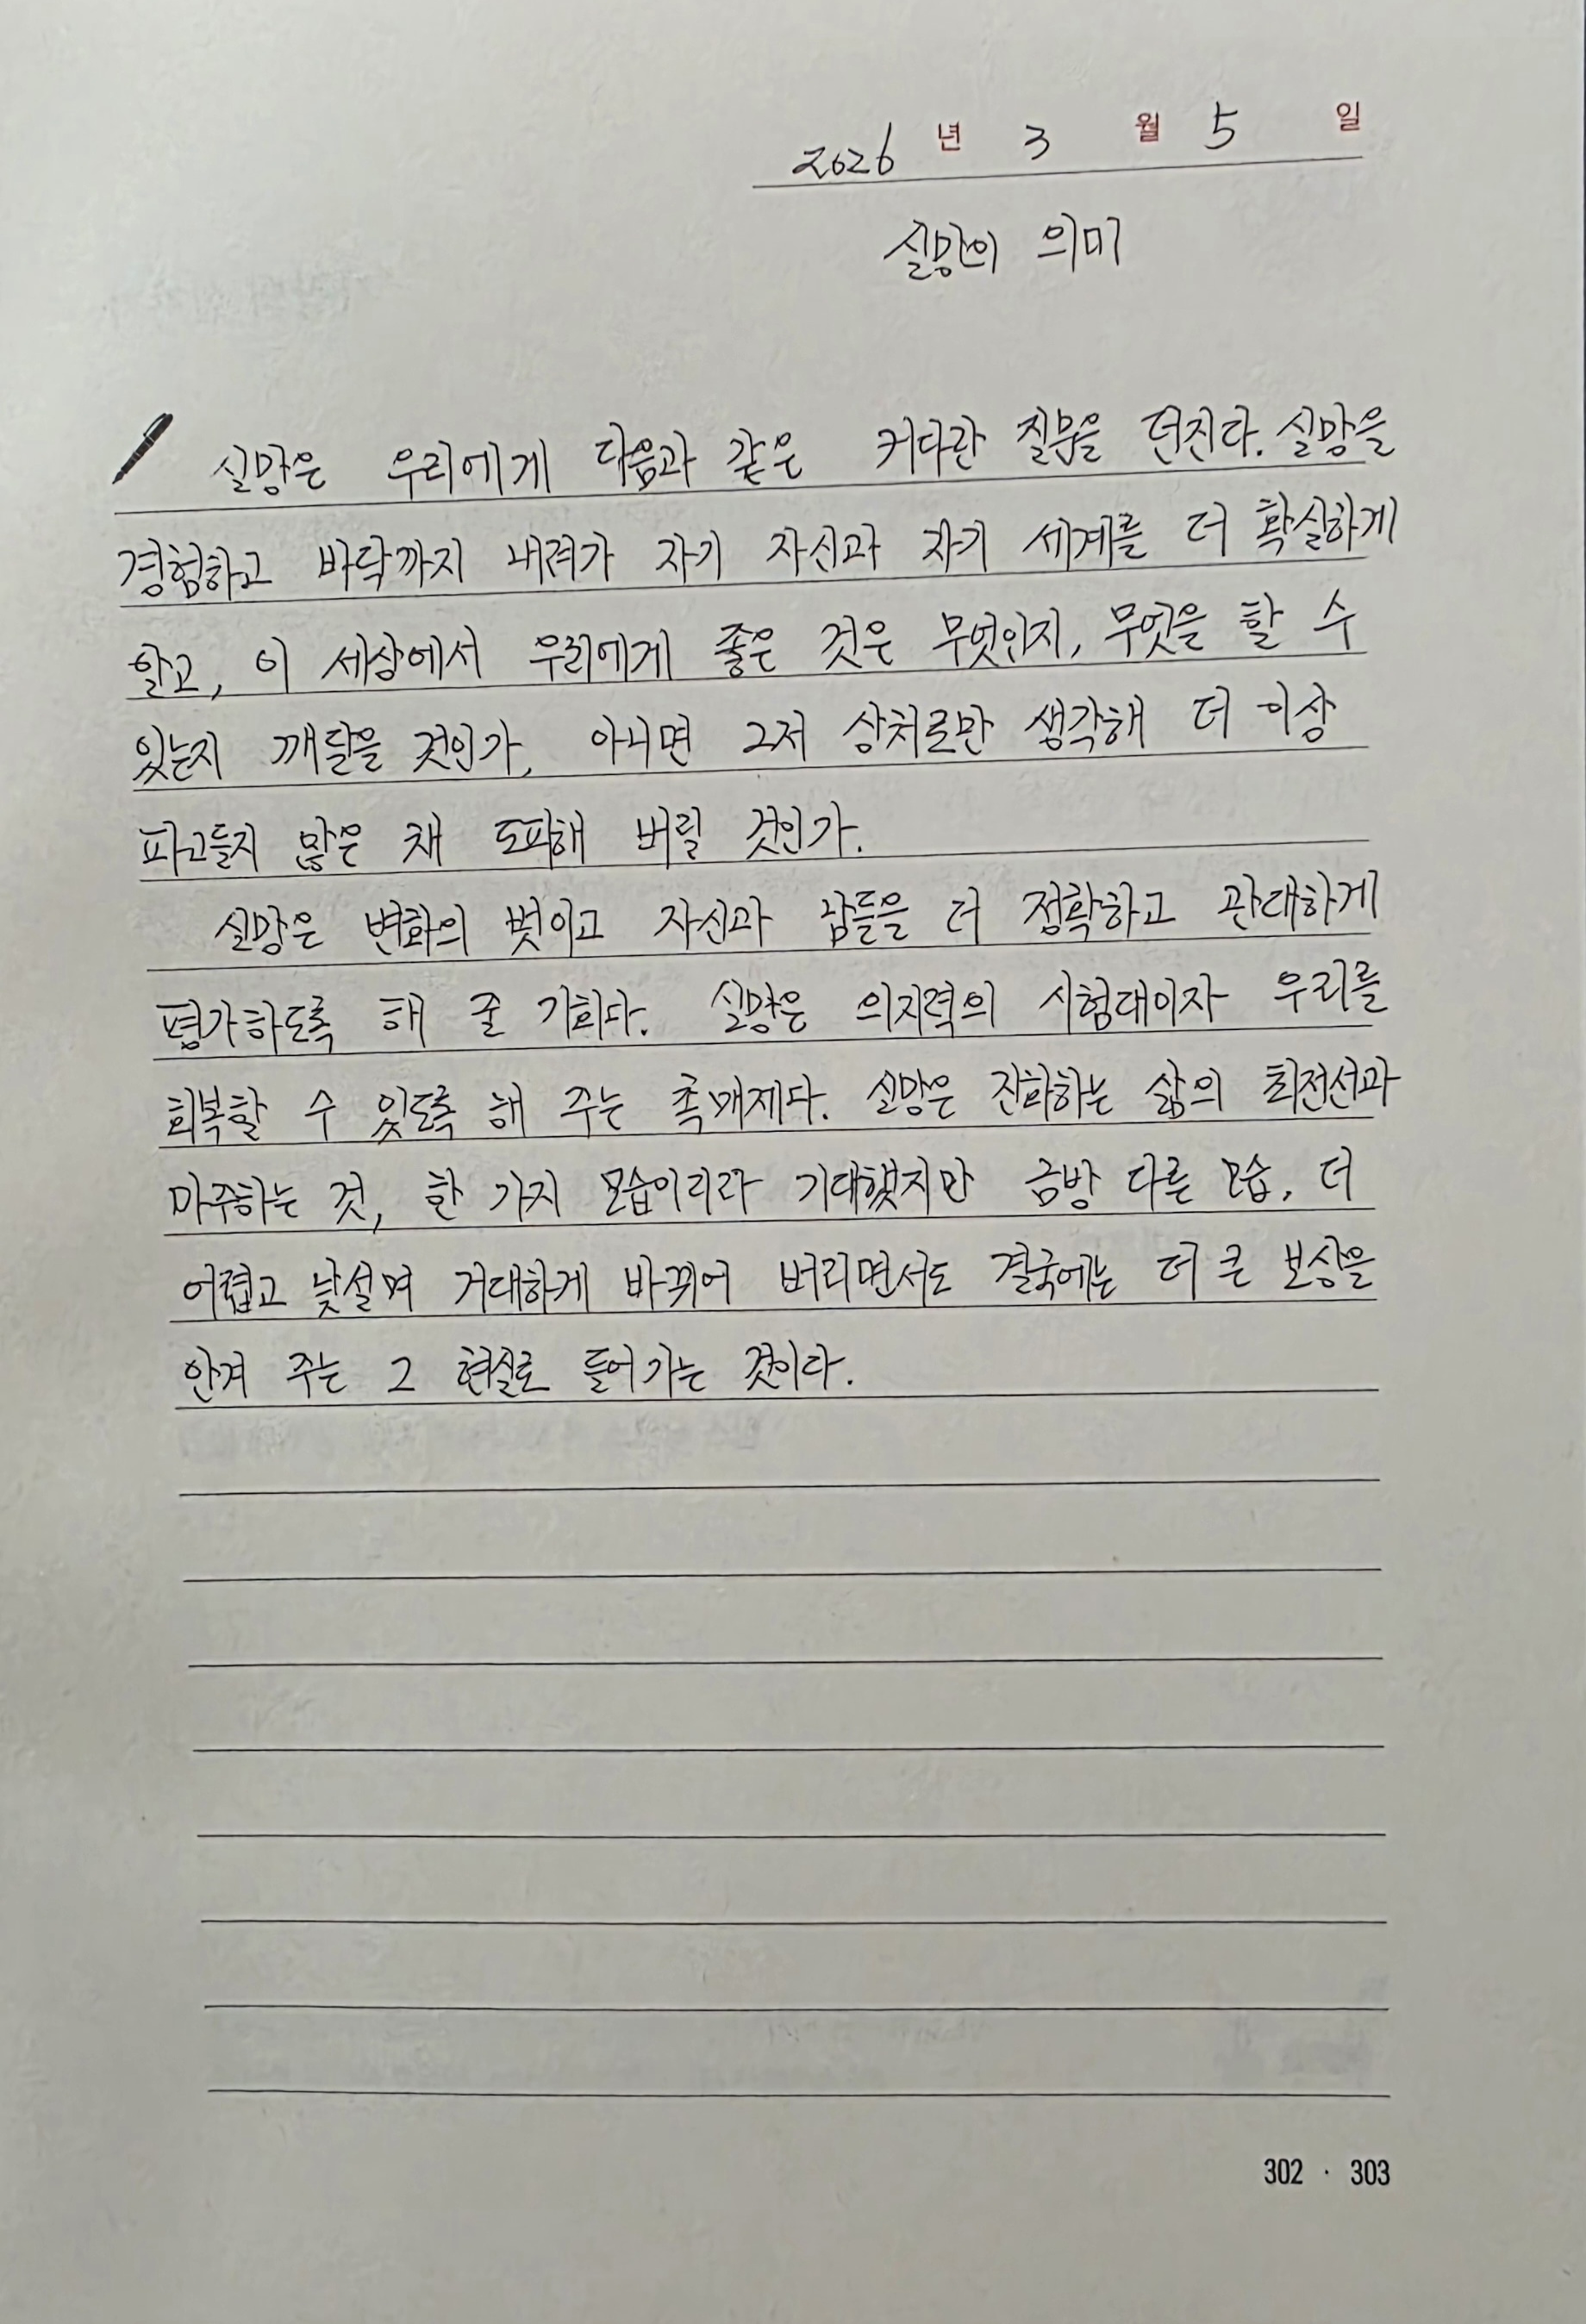 2026 년 3 월 5 일
실망의 의미
실망은 우리에게 다음과 같은 커다란 질문을 던진다. 실망을
경험하고 바닥까지 내려가 자기 자신과 자기 세계를 더 확실하게
알고, 이 세상에서 우리에게 좋은 것은 무엇인지, 무엇을 할 수
있는지 깨달을 것인가, 아니면 그저 상처로만 생각해 더 이상
파고들지 않은 채 도피해 버릴 것인가.
실망은 변화의 벗이고 자신과 남들을 더 정확하고 관대하게
평가하도록 해 줄 기회다. 실망은 의지력의 시험대이자 우리를
회복할 수 있도록 해 주는 촉매제다. 실망은 진화하는 삶의 최전선과
마주하는 것, 한 가지 모습이리라 기대했지만 금방 다른 모습, 더
어렵고 낯설며 거대하게 바뀌어 버리면서도 결국에는 더 큰 보상을
안겨 주는 그 현실로 들어가는 것이다.
302 · 303